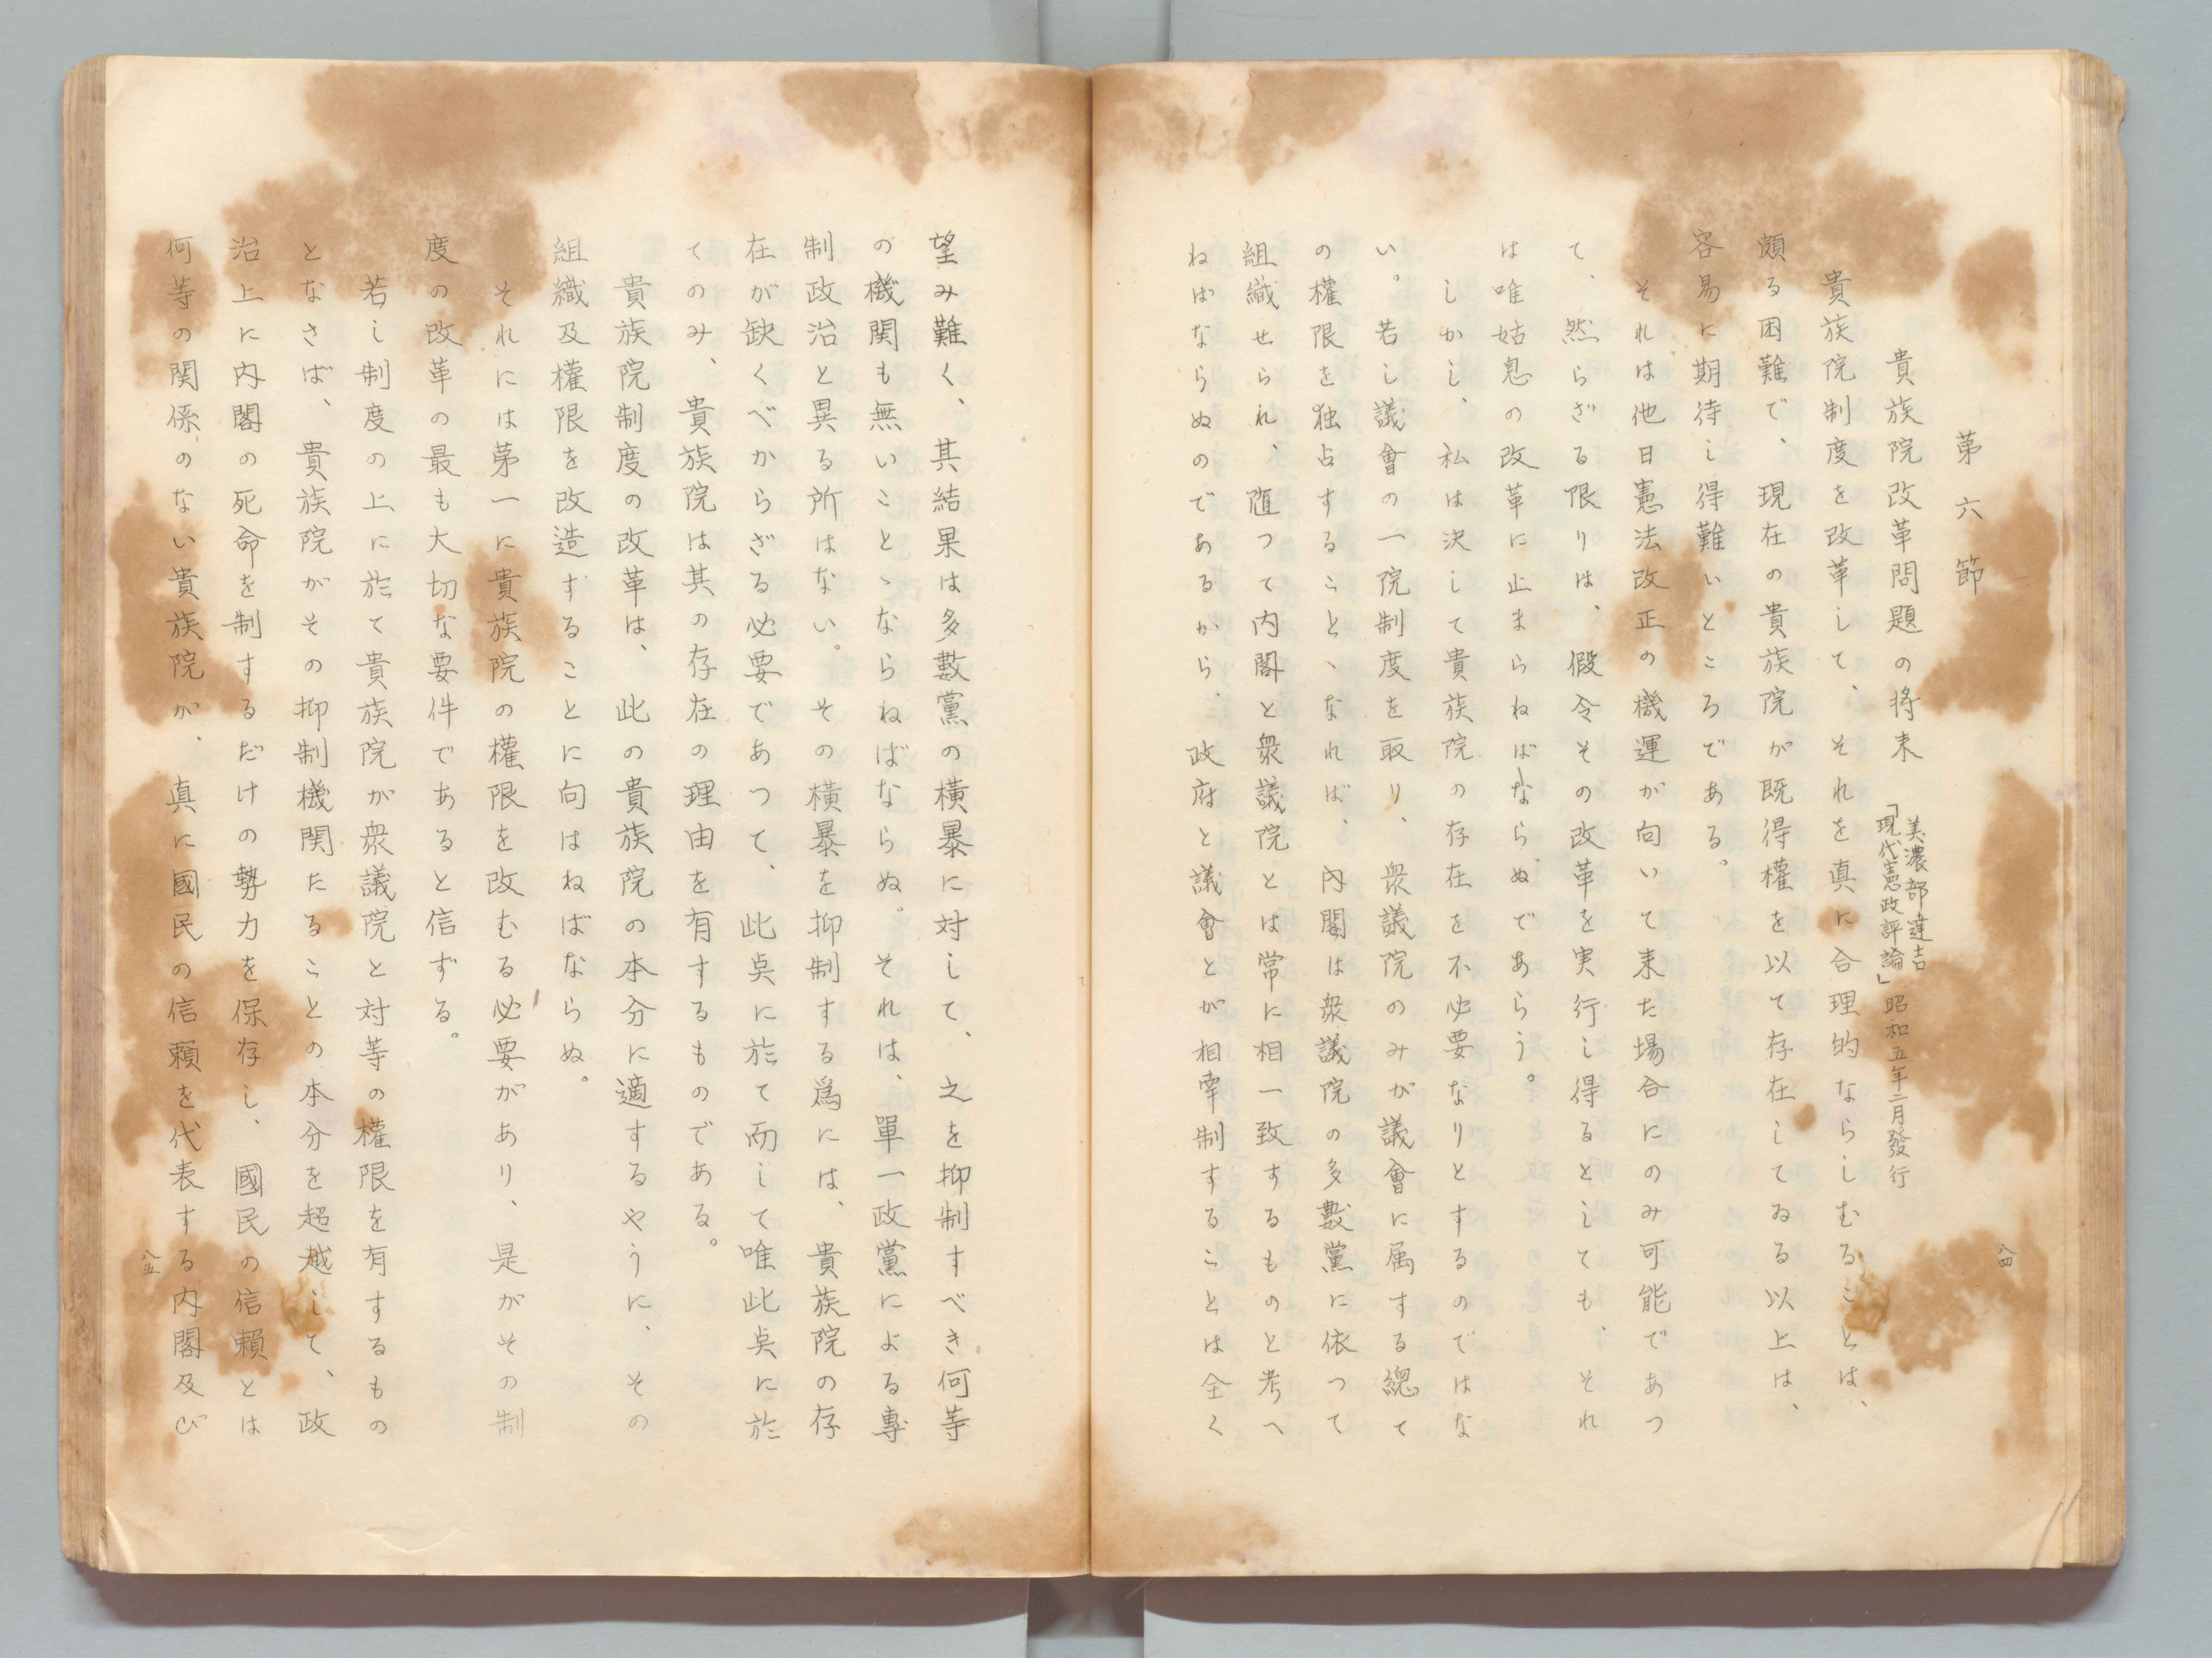 第六節
貴族院改革問題の将来
美濃部達吉
「現代憲政評論」昭和五年二月發行
貴族院制度を改革して、それを真に合理的ならしむることは、
頗る困難で、現在の貴族院が既得權を以て存在してゐる以上は、
容易に期待し得難いところである。
それは他日憲法改正の機運が向いて来た場合にのみ可能であつ
て、然らざる限りは、假令その改革を実行し得るとしても、それ
は唯姑息の改革に止まらねばならぬであらう。
しかし、私は決して貴族院の存在を不必要なりとするのではな
い。若し議會の一院制度を取り、衆議院のみが議會に属する總て
の權限を独占することゝなれば、内閣は衆議院の多數黨に依つて
組織せられ、随つて内閣と衆議院とは常に相一致するものと考へ
ねばならぬのであるから、政府と議會とが相牽制することは全く
八四
望み難く、其結果は多數黨の横暴に対して、之を抑制すべき何等
の機関も無いことゝならねばならぬ。それは、單一政黨による專
制政治と異る所はない。その横暴を抑制する爲には、貴族院の存
在が缺くべからざる必要であつて、此点に於て而して唯此点に於
てのみ、貴族院は其の存在の理由を有するものである。
貴族院制度の改革は、此の貴族院の本分に適するやうに、その
組織及權限を改造することに向はねばならぬ。
それには第一に貴族院の權限を改むる必要があり、是がその制
度の改革の最も大切な要件であると信ずる。
若し制度の上に於て貴族院が衆議院と対等の權限を有するもの
となさば、貴族院がその抑制機関たることの本分を超越して、政
治上に内閣の死命を制するだけの勢力を保存し、國民の信頼とは
何等の関係のない貴族院が、真に國民の信頼を代表する内閣及び
八五